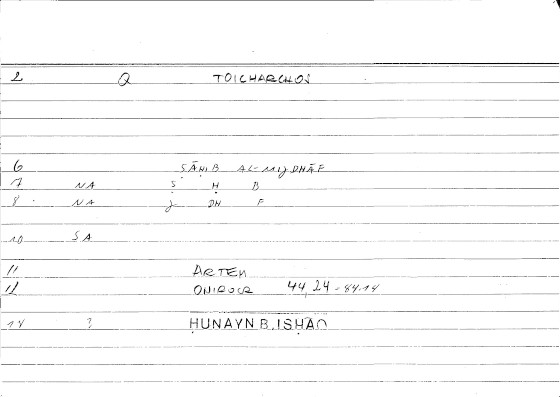 2 Q TOICHARCHOS
6 ṢĀḤIB AL-MIJDHĀF
7 NA Ṣ Ḥ B
8 NA J DH F
10 SA
11 ARTEM
12 ONIROCR 44,24 - 84.14
14 3 ḤUNAYN B. ISḤĀQ